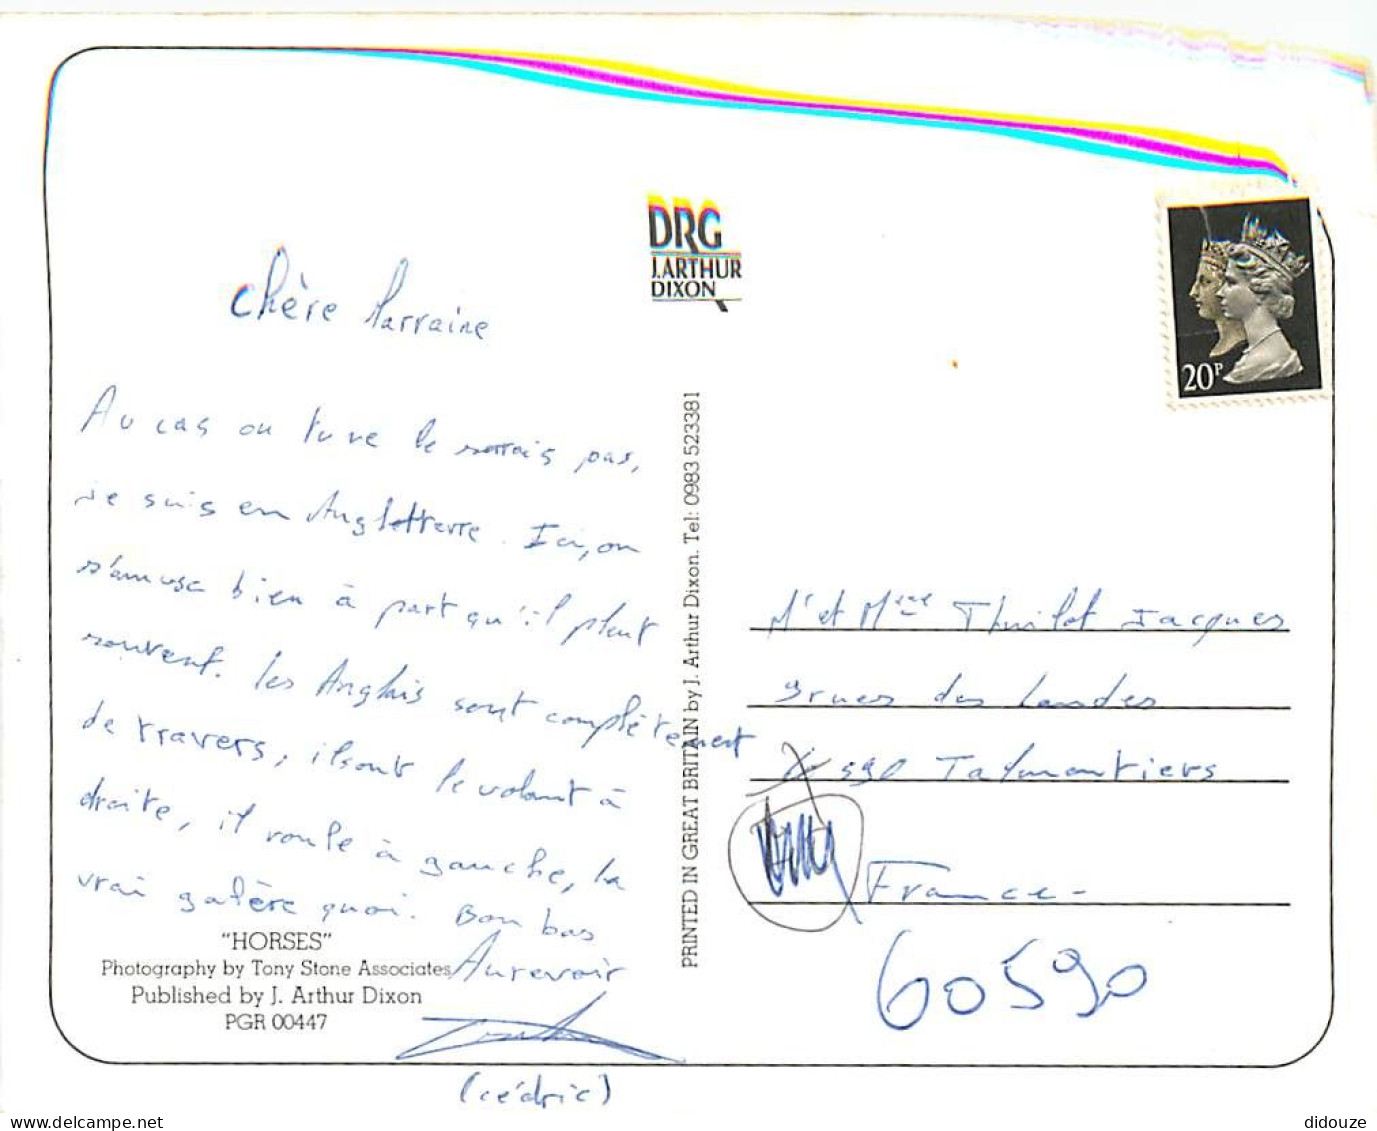 DRG
J.ARTHUR
DIXON
20P
chère Marraine
Au cas ou tu ne le serais pas,
Je suis en Angletterre. Ici, on
s'amuse bien à part qu'il pleut
souvent. les Anglais sont complètement
de travers, il sont le volant à
droite, il roule à gauche, la
vrai galère quoi. Bon bas
Aurevoir
(cédric)
"HORSES"
Photography by Tony Stone Associates
Published by J. Arthur Dixon
PGR 00447
PRINTED IN GREAT BRITAIN by J. Arthur Dixon. Tel: 0983 523381
Mr et Mme Thuilot Jacques
3 rues des Landes
590 Talmontiers
France-
60590
www.delcampe.net
didouze